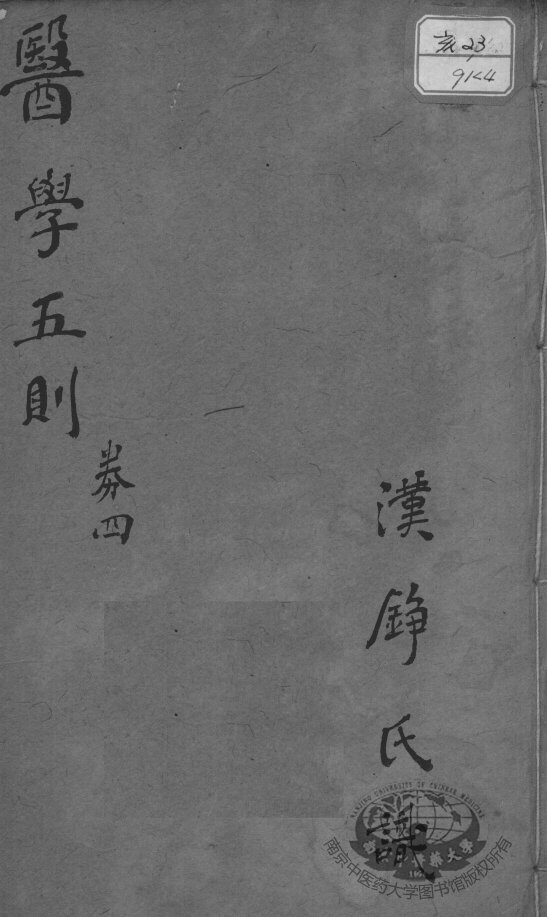 醫學五則
券四
漢錚氏識
亥23
9K4
NANJING UNIVERSITY OF CHINESE MEDICINE
南京中医药大学图书馆版权所有